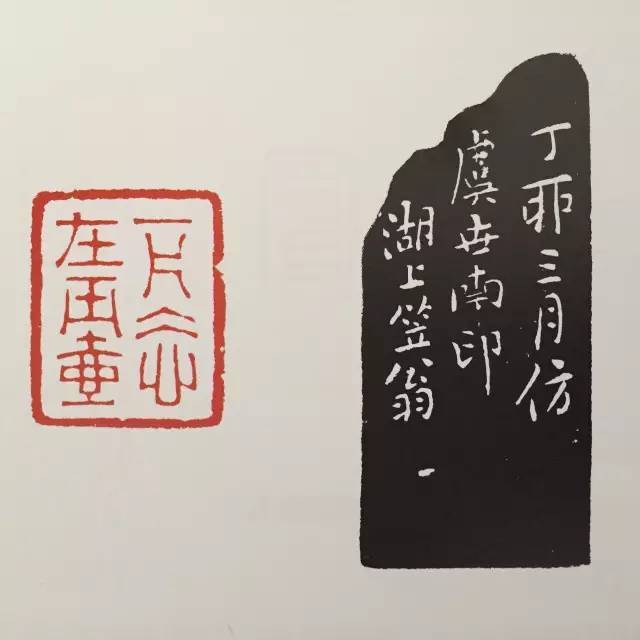 丁丣三月仿
虞世南印
湖上笠翁
一片仌心
在玉壺